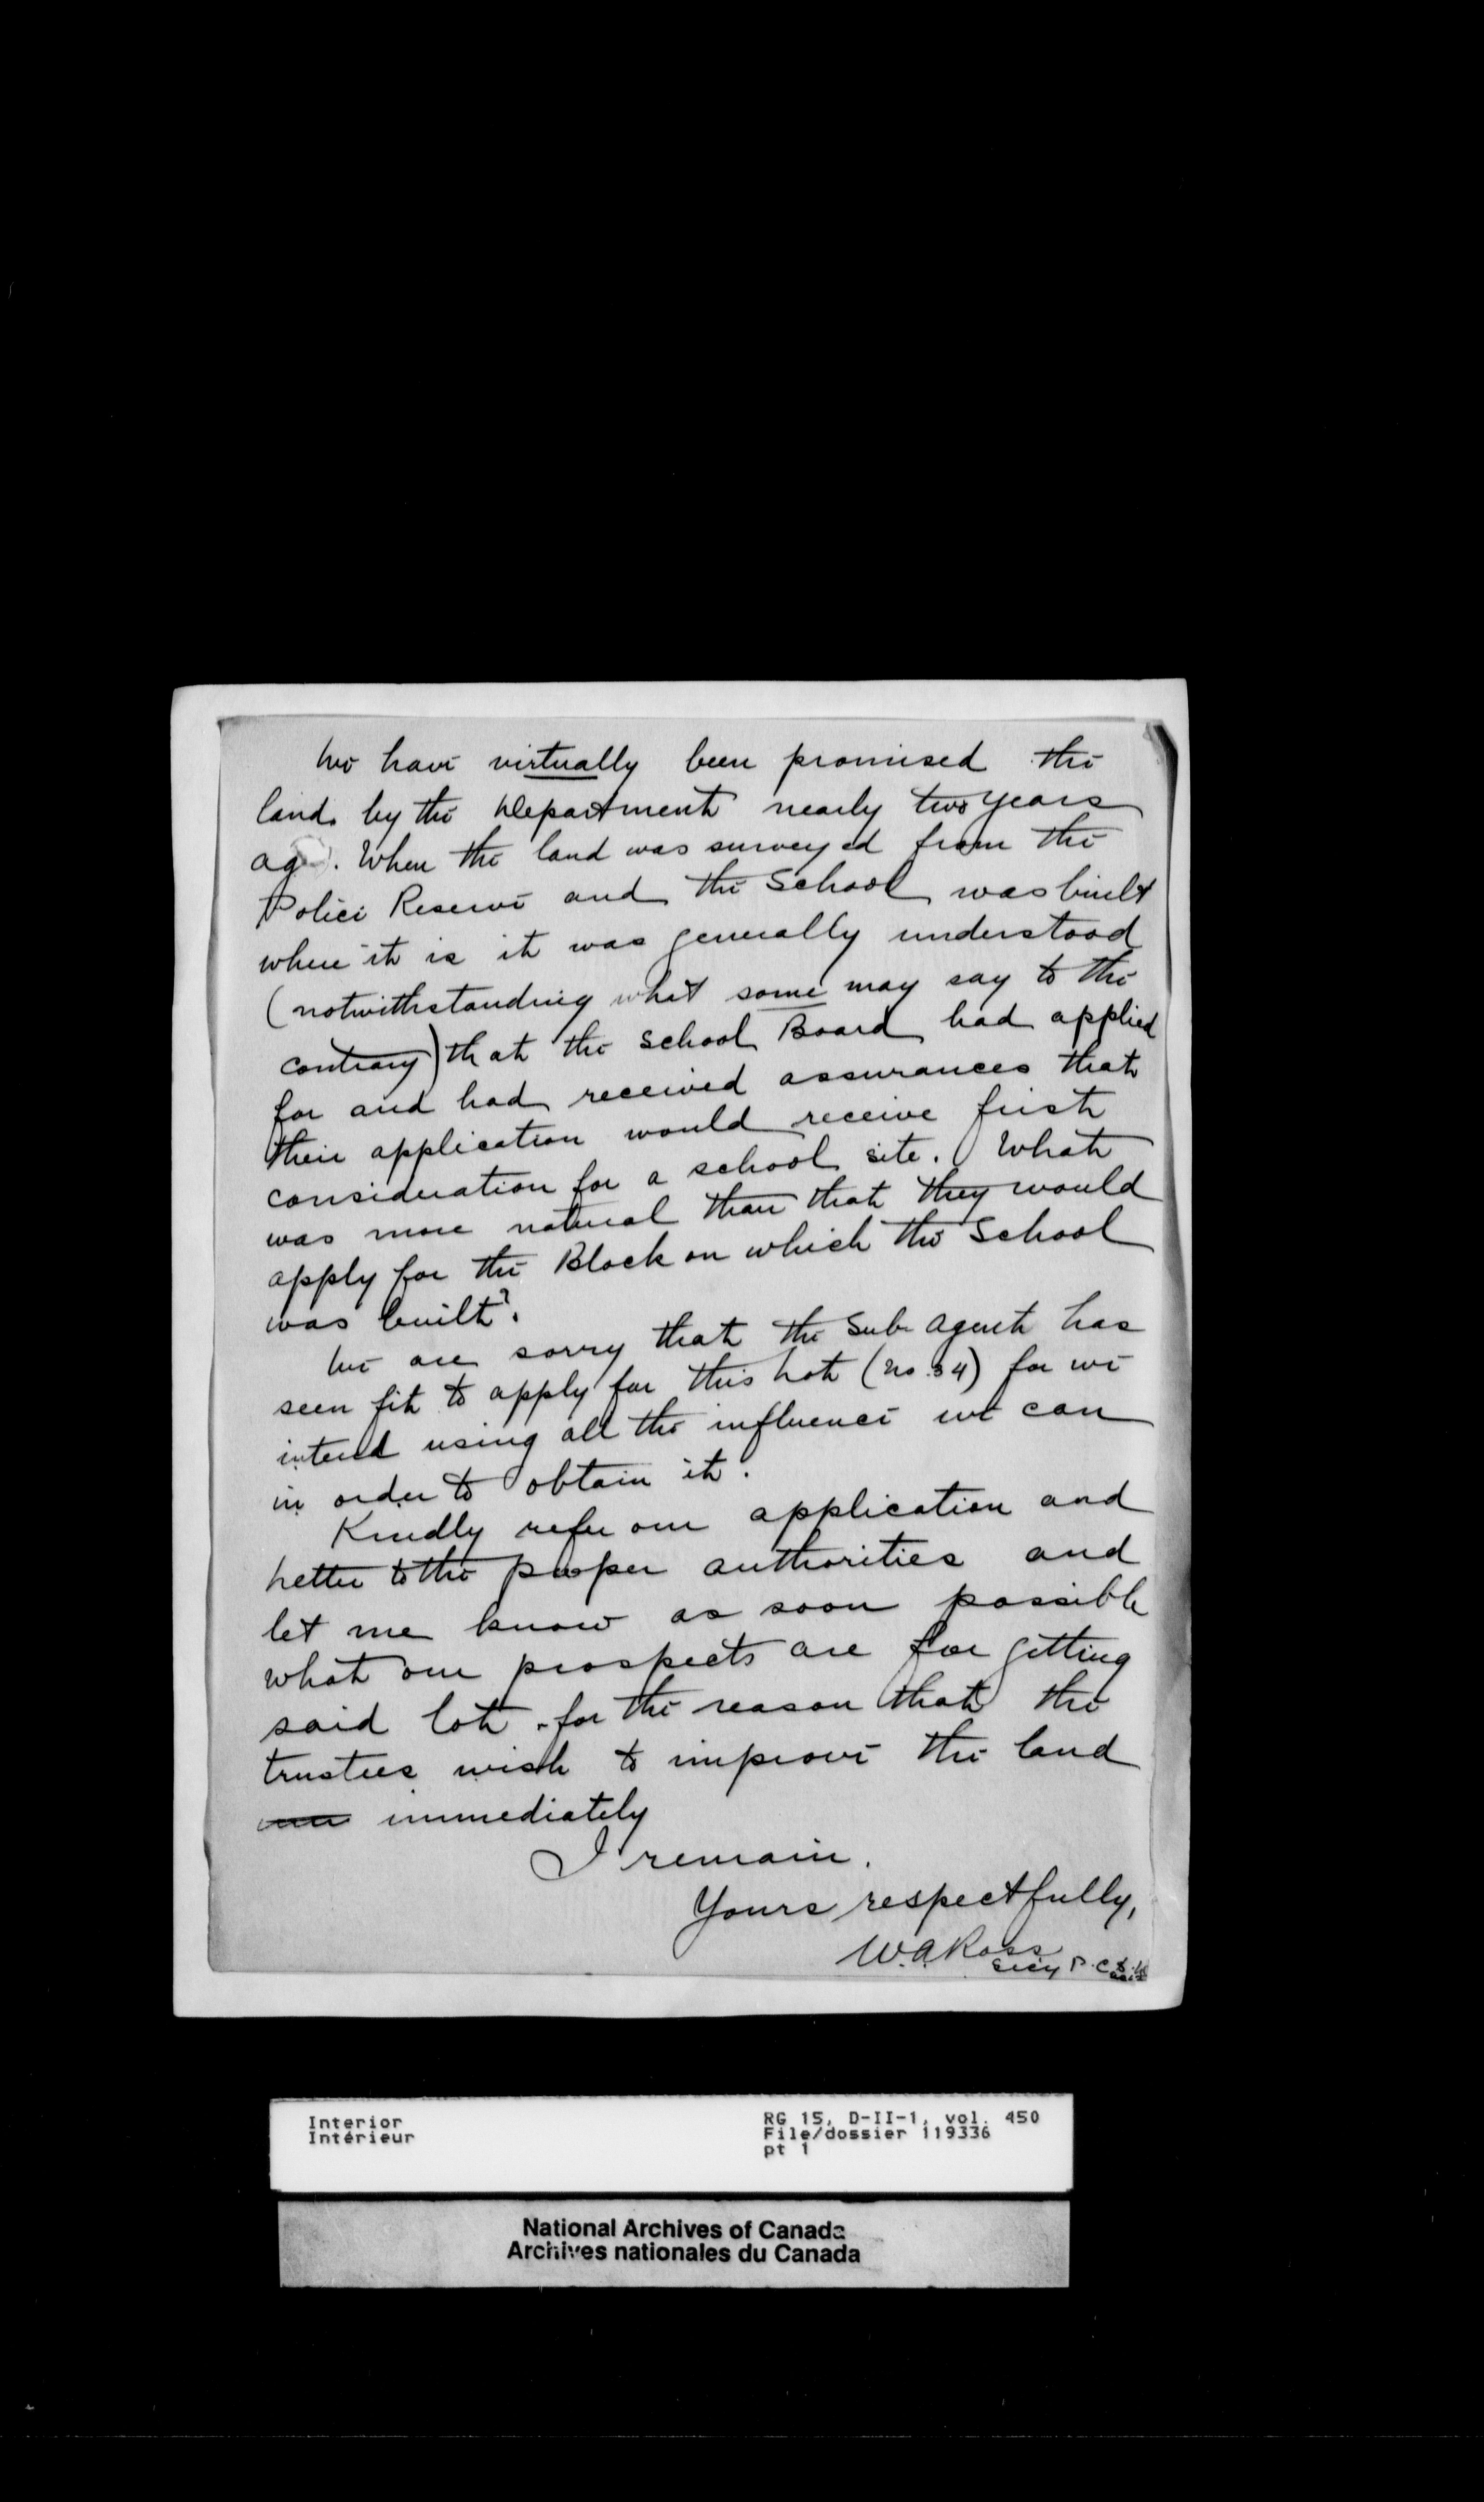 We have virtually been promised the
land by the Department nearly two years
ago. When the land was surveyed from the
Police Reserve and the School was built
where it is it was generally understood
(notwithstanding what some may say to the
contrary) that the School Board had applied
for and had received assurances that
their application would receive first
consideration for a school site. What
was more natural than that they would
apply for the Block on which the School
was built?
We are sorry that the Sub agent has
seen fit to apply for this Lot (no. 34) for we
intend using all the influence we can
in order to obtain it.
Kindly refer our application and
Letter to the proper authorities and
let me know as soon possible
what our prospects are for getting
said lot - for the reason that the
trustees wish to improve the land
immediately
I remain.
Yours respectfully,
W.A. Ross
Secy P.C.S.
Interior
Intérieur
RG 15, D-II-1, vol. 450
File/dossier 119336
pt 1
National Archives of Canada
Archives nationales du Canada